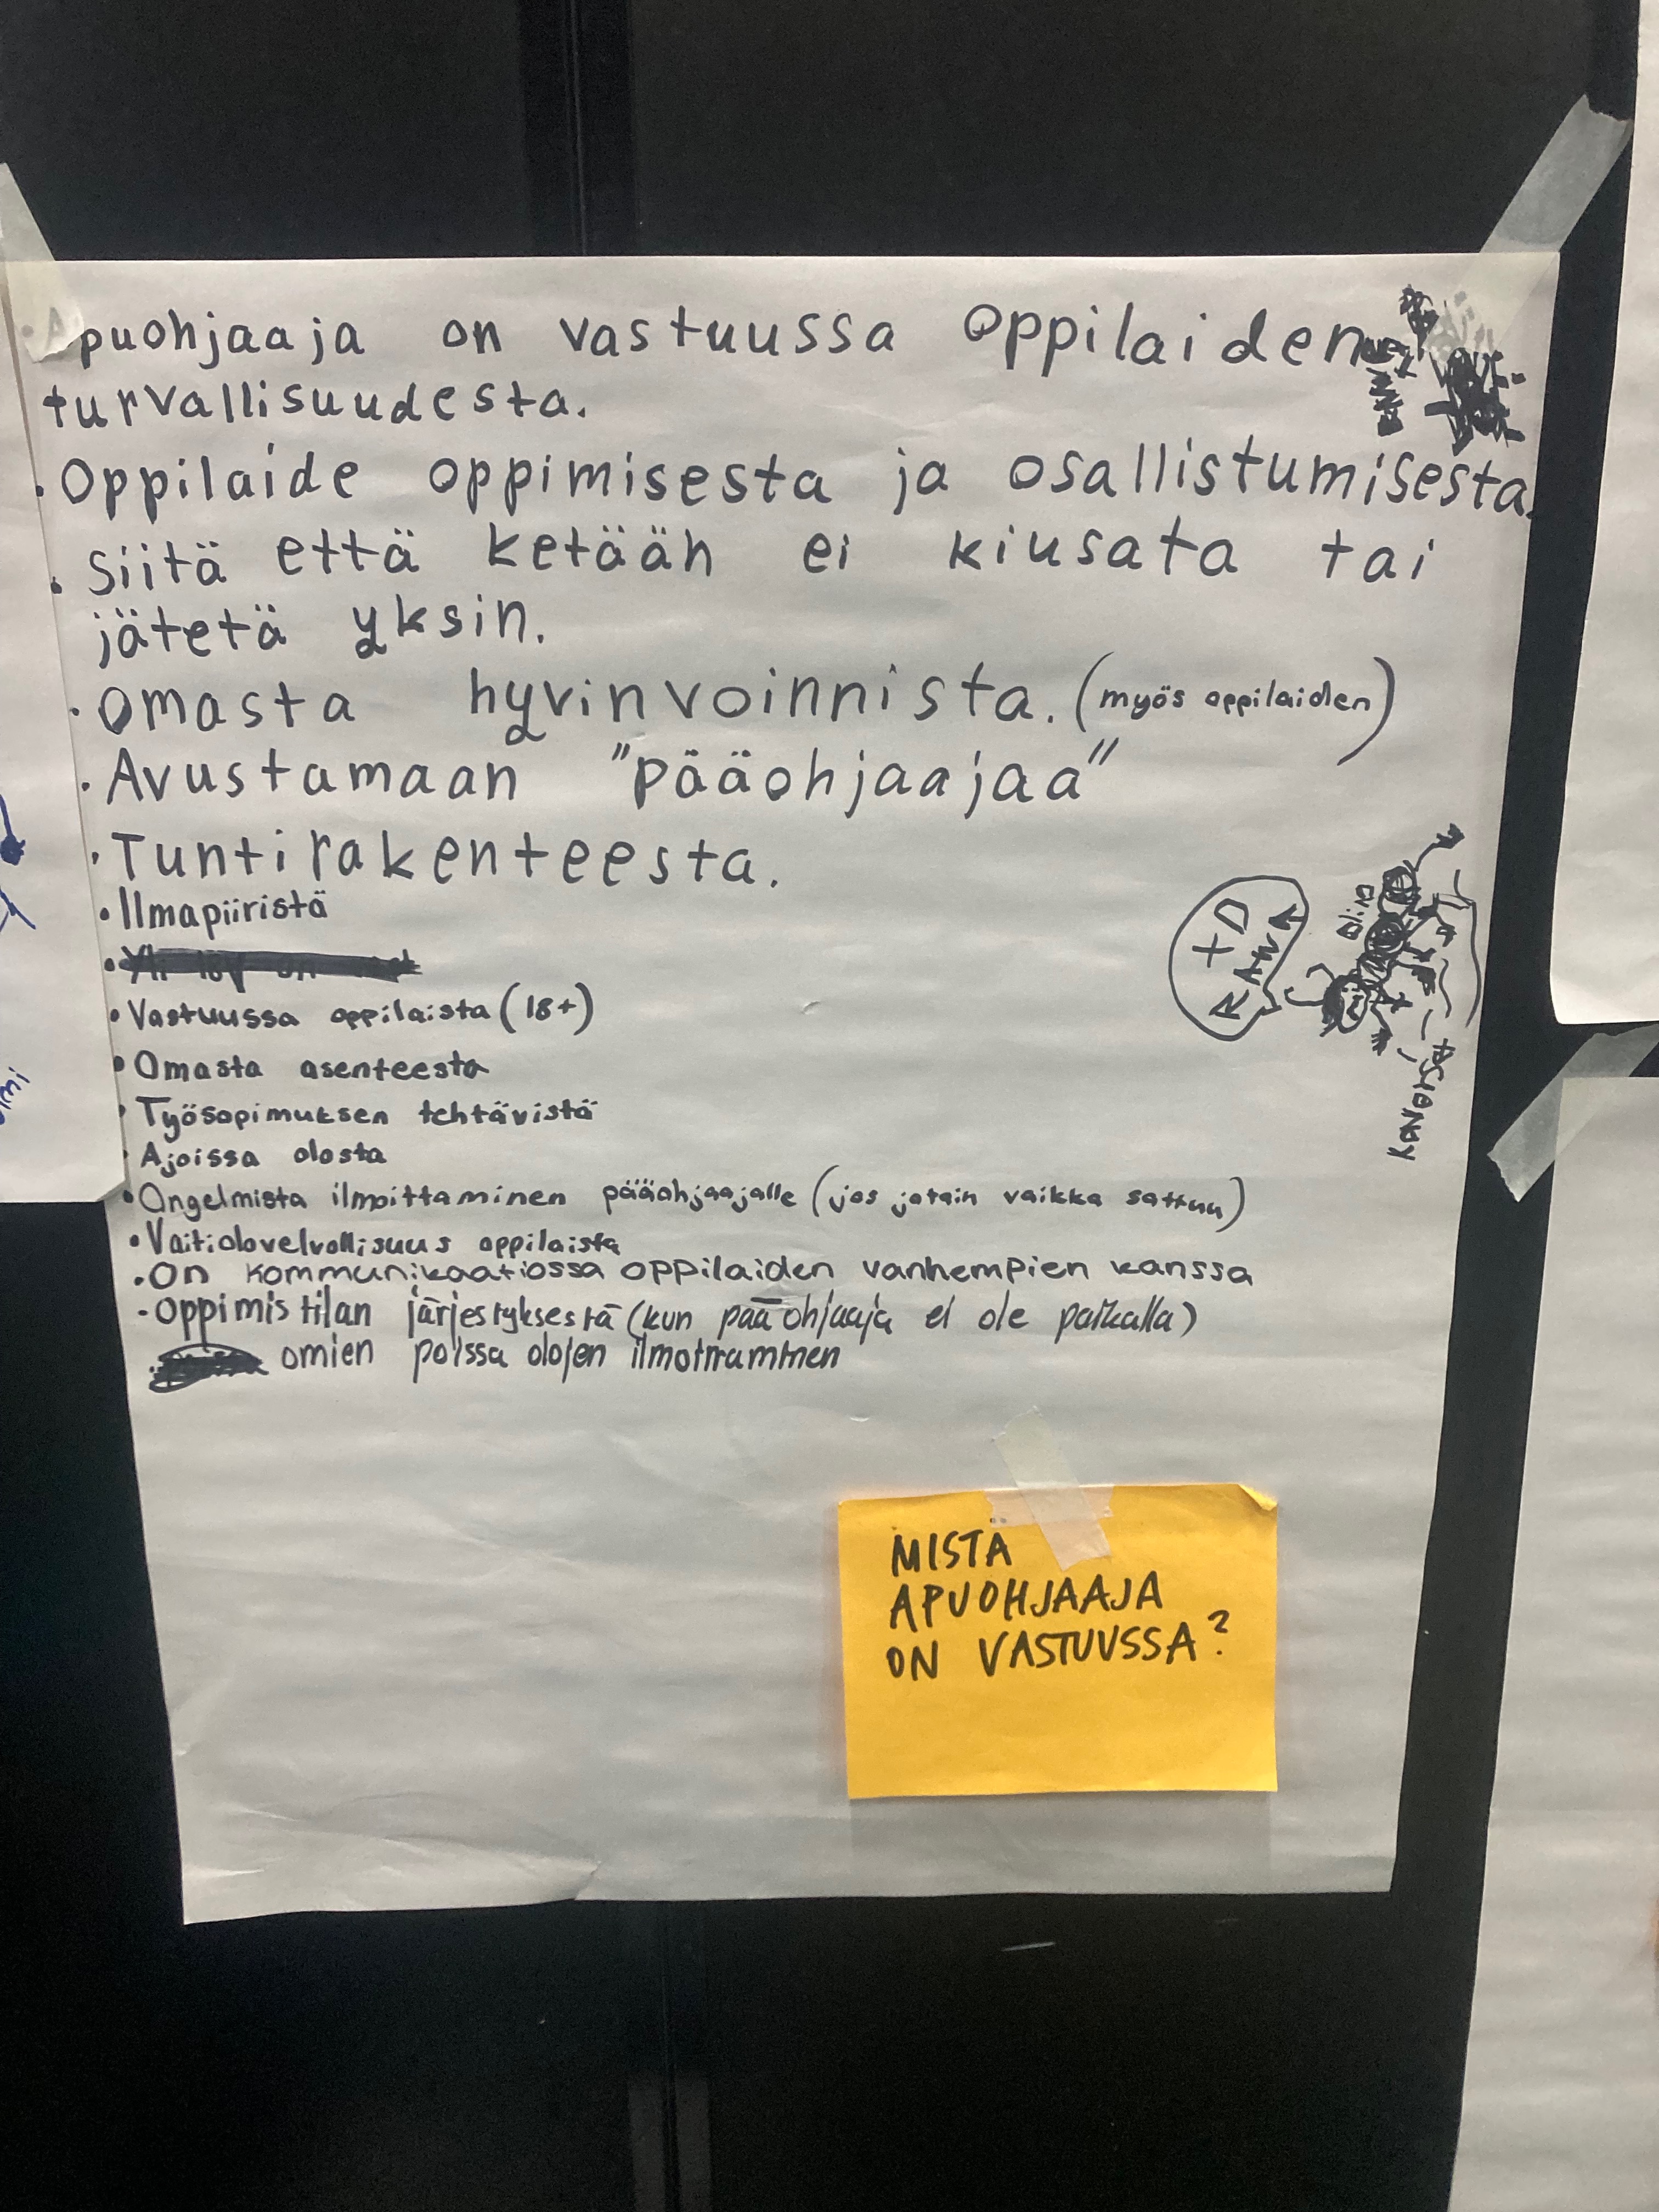 • Apuohjaaja on vastuussa oppilaiden
turvallisuudesta.
• Oppilaide oppimisesta ja osallistumisesta.
• siitä että ketään ei kiusata tai
jätetä yksin.
• omasta hyvinvoinnista. (myös oppilaiden)
• Avustamaan "pääohjaajaa"
• Tuntirakenteesta.
• Ilmapiiristä
• Vastuussa oppilaista (18+)
• Omasta asenteesta
• Työsopimuksen tehtävistä
• Ajoissa olosta
• Ongelmista ilmoittaminen pääohjaajalle (jos jotain vaikka sattuu)
• Vaitiolovelvollisuus oppilaista
• On kommunikaatiossa oppilaiden vanhempien kanssa
- oppimistilan järjestyksestä (kun pääohjaaja ei ole paikalla)
omien poissa olojen ilmottaminen
XD
RAWR
MISTÄ
APUOHJAAJA
ON VASTUUSSA?